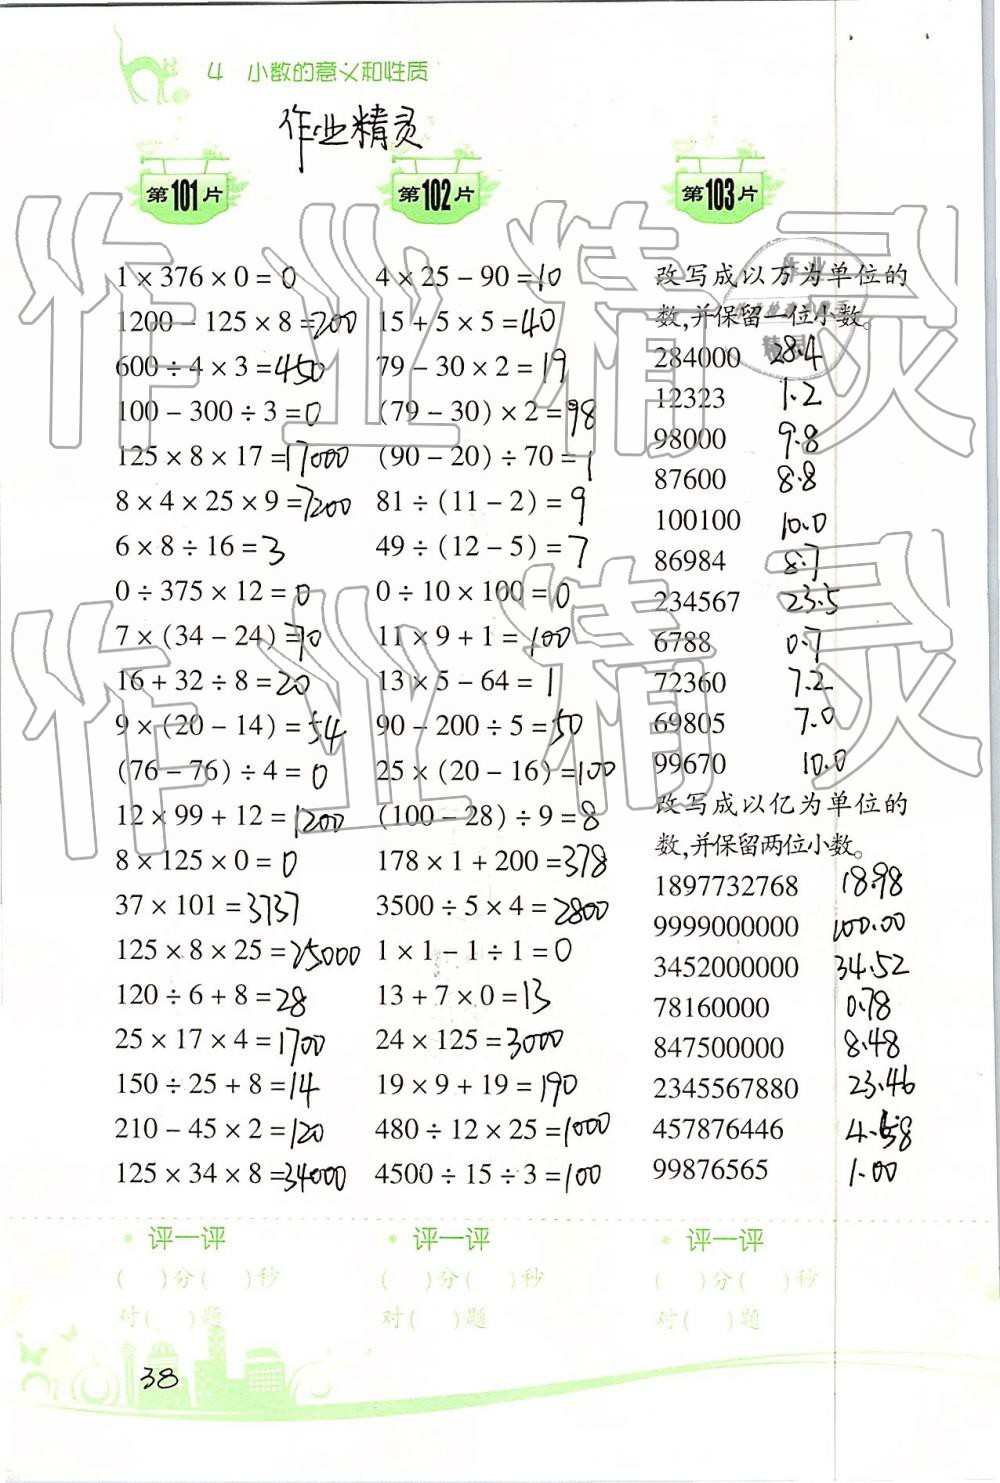 4 小数的意义和性质
作业精灵
第101片
1×376×0=0
1200-125×8=200
600÷4×3=450
100-300÷3=0
125×8×17=17000
8×4×25×9=7200
6×8÷16=3
0÷375×12=0
7×(34-24)=70
16+32÷8=20
9×(20-14)=54
(76-76)÷4=0
12×99+12=1200
8×125×0=0
37×101=3737
125×8×25=25000
120÷6+8=28
25×17×4=1700
150÷25+8=14
210-45×2=120
125×34×8=34000
评一评
( )分( )秒
对( )题
第102片
4×25-90=10
15+5×5=40
79-30×2=19
(79-30)×2=98
(90-20)÷70=1
81÷(11-2)=9
49÷(12-5)=7
0÷10×100=0
11×9+1=100
13×5-64=1
90-200÷5=50
25×(20-16)=100
(100-28)÷9=8
178×1+200=378
3500÷5×4=2800
1×1-1÷1=0
13+7×0=13
24×125=3000
19×9+19=190
480÷12×25=1000
4500÷15÷3=100
评一评
( )分( )秒
对( )题
第103片
改写成以万为单位的
数,并保留一位小数。
284000 28.4
12323 1.2
98000 9.8
87600 8.8
100100 10.0
86984 8.7
234567 23.5
6788 0.7
72360 7.2
69805 7.0
99670 10.0
改写成以亿为单位的
数,并保留两位小数。
1897732768 18.98
9999000000 100.00
3452000000 34.52
78160000 0.78
847500000 8.48
2345567880 23.46
457876446 4.58
99876565 1.00
评一评
( )分( )秒
对( )题
38
作业精灵
作业精灵